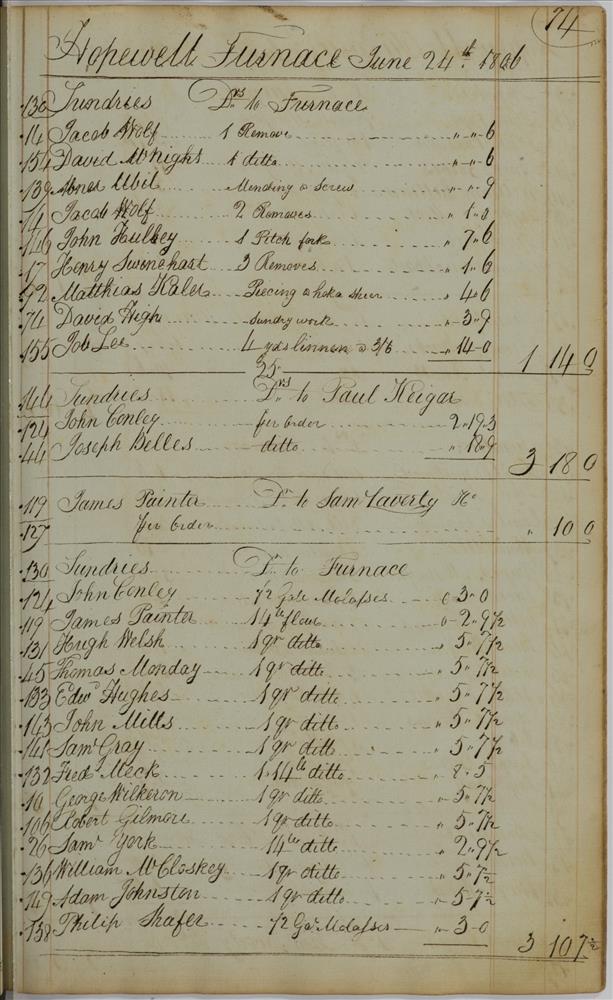 74
Hopewell Furnace June 24th. 1806
130 Sundries Drs to Furnace
14 Jacob Wolf 1 Remove " " 6
154 David McNight 1 ditto " " 6
139 Abner Ubil Mending a Screw " " 9
74 Jacob Wolf 2 Removes " 1 " 0
146 John Hulsey 1 Pitch fork " 7 " 6
17 Henry Swinehart 3 Removes " 1 " 6
92 Matthias Kaler Piecing a 4 " 6
74 David High Sundry work " 3 " 9
155 Job Lee 4 yds linnen @ 3/6 " 14 " 0 1 14 0
25
144 Sundries Drs to Paul Keigar
124 John Conley per order 2 " 19 " 3
44 Joseph Belles ditto " 18 " 9 3 18 0
119 James Painter Dr to Saml Laverty
127 per order " 10 0
130 Sundries Dr to Furnace
124 John Conley 1/2 Gale Molasses 0 3 " 0
119 James Painter 14 lb flour 0 " 2 " 9 1/2
131 Hugh Welsh 1 qr ditto " 5 " 7 1/2
45 Thomas Monday 1 qr ditto " 5 " 7 1/2
133 Edwd Hughes 1 qr ditto " 5 " 7 1/2
143 John Mills 1 qr ditto " 5 " 7 1/2
141 Saml Gray 1 qr ditto " 5 " 7 1/2
132 Fredk Meck 1 " 14 lb ditto " 8 " 5
10 George Wilkeron 1 qr ditto " 5 " 7 1/2
106 Robert Gilmore 1 qr ditto " 5 " 7 1/2
26 Saml York 14 lb ditto " 2 " 9 1/2
136 William McCloskey 1 qr ditto " 5 " 7 1/2
149 Adam Johnston 1 qr ditto " 5 " 7 1/2
138 Philip Shafer 1/2 Gal Molasses " 3 " 0 3 10 7 1/2